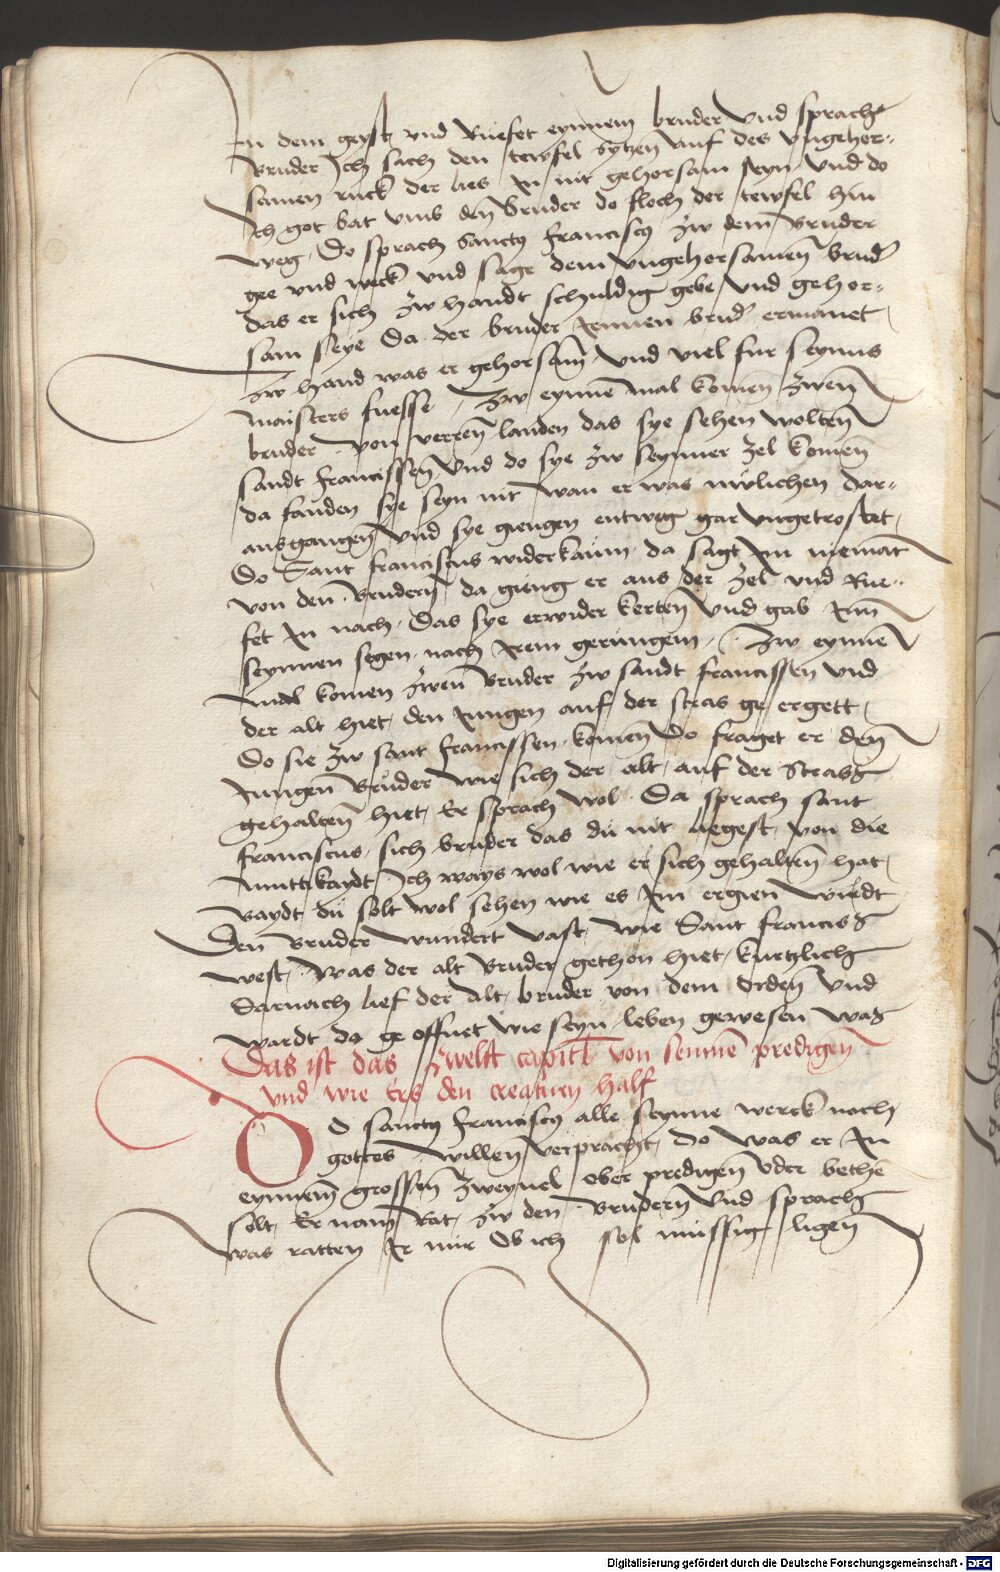 In dem geyst vnd Rueffet eynnem bruder vnd sprach
Bruder Ich sach den tewfel sytzen auf des vngehor-
samen ruck der lies In nit gehorsam seyn vnd do
Ich got bat vmb den Bruder do floch der tewfel hin
weg, Do sprach Sanctus franciscus zw dem Bruder
gee vnd weck vnd sage dem vngehorsamen brud
das er sich zw handt schuldig gebe vnd gehor-
sam seye Da der bruder Jennen brud ermanet,
Zw hand was er gehorsam vnd viel fur seynns
maisters fuesse, Zw eynne mal komen zwen
bruder von verren landen das sye sehen wolten
sandt franncissen Vnd do sye zw seynner zel komen
da fanden sye seyn nit wan er was nwlichen dar-
ausgangen vnd sye giengen entweg gar vngetrostet,
Do Sant franciscus widerkaum, da sagt Im niemat
von den Brudern da gieng er aus der zel vnd Rue-
fet In nach, Das sye erwider kerten vnd gab Inn
seynnen segen, nach Irem geringem, Zw eynne
mal komen zwen Bruder zw sandt francissen vnd
der alt hiet, den Jungen auf der stras ge ergett,
Do sie zw sant francissen komen do fraget er den
Jungen Bruder wie sich der alt, auf der Strasz
gehalten hiet, Er sprach wol. Da sprach sant
franciscus, sich bruder das du nit liegest, von die
muttikaydt Ich ways wol wie er sich gehalten hat,
Baydt du solt wol sehen wie es Im ergien wurdt
Den Bruder wundert vast, wie Sant francisz
west, was der alt Bruder gethon hiet, kurtzlich
Darnach lief der Alt, bruder von dem Orden vnd
wardt do ge offnet wie seyn leben gewesen was
Das ist das zwelft capitl von sennem predigen
vnd wie Er den creaturn half
Do sanctus franciscus alle seynne werck nach
gottes willen verpracht, do was er In
eynnem grossem zweyuel ober predigen oder bethe
solt, Er nam Rat, zw den Brudern vnd sprach
was ratten Ir mir Ob ich sol mussig ligen
Digitalisierung gefördert durch die Deutsche Forschungsgemeinschaft - DFG